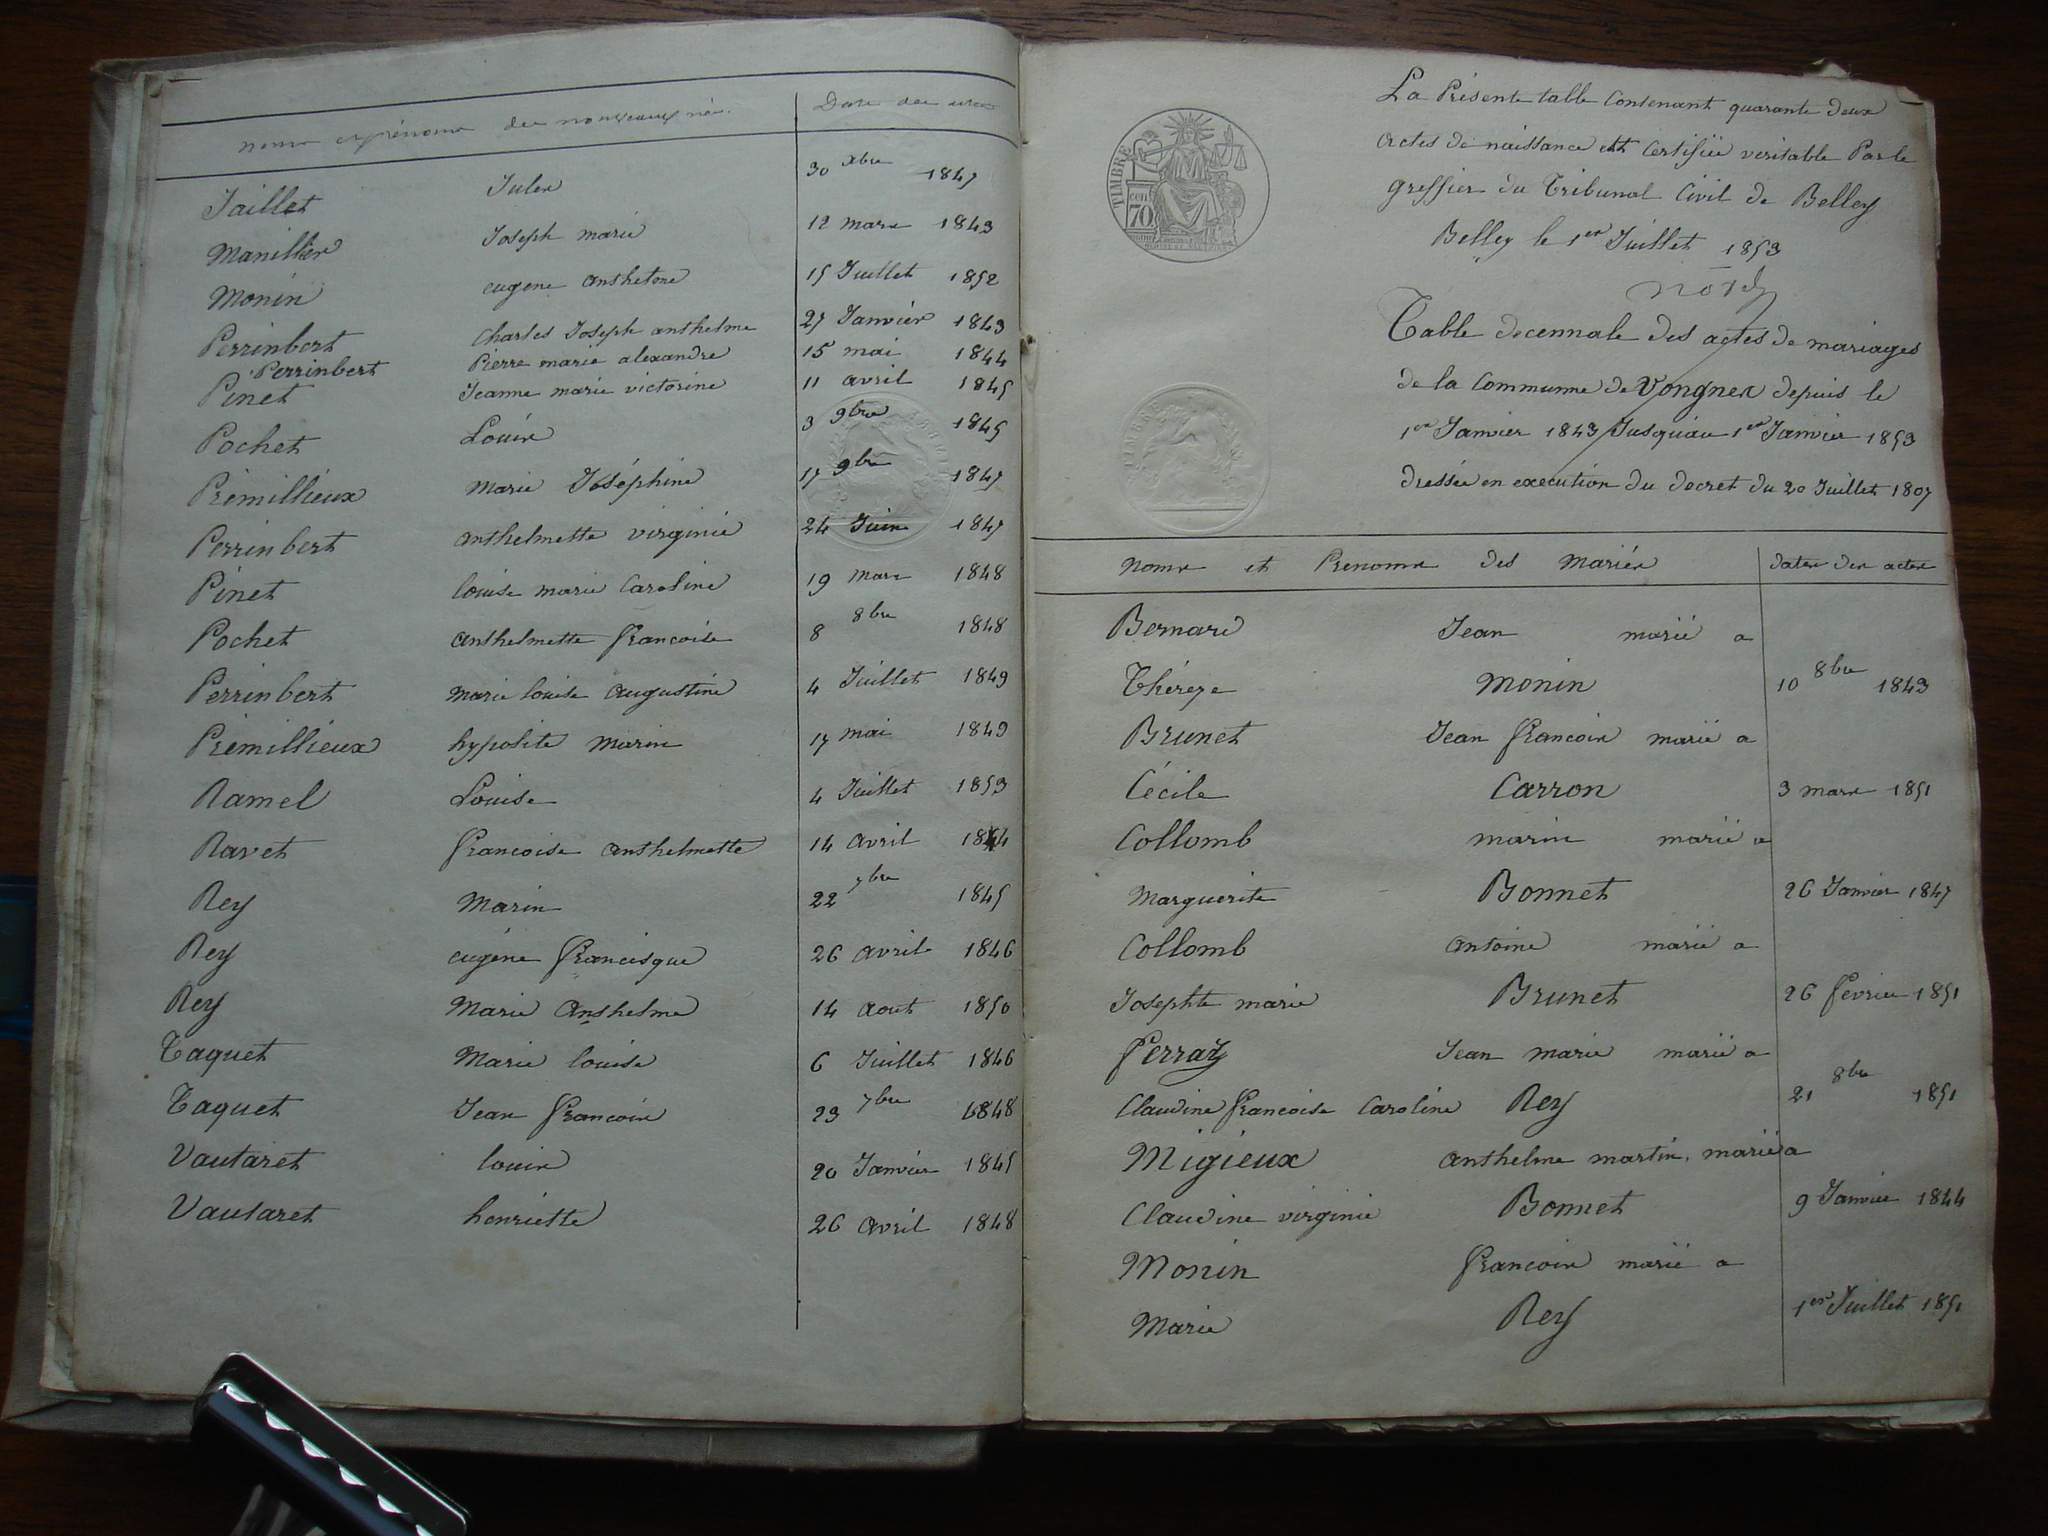 noms et prénoms des nouveaux nés. Date des actes
Jaillet Jules 30 xbre 1847
Manillier Joseph marie 12 mars 1843
Monin eugene anthelme 15 Juillet 1852
Perrinbert Charles Joseph anthelme 27 Janvier 1843
Perrinbert Pierre marie alexandre 15 mai 1844
Pinet Jeanne marie victorine 11 avril 1845
Pochet Louis 3 9bre 1845
Prémillieux marie Joséphine 17 9bre 1847
Perrinbert anthelmette virginie 24 Juin 1847
Pinet louise marie Caroline 19 mars 1848
Pochet anthelmette francoise 8 8bre 1848
Perrinbert marie louise augustine 4 Juillet 1849
Prémillieux hypolite marin 17 mai 1849
Ramel Louise 4 Juillet 1853
Ravet francoise anthelmette 14 avril 1844
Rey Marin 22 7bre 1845
Rey eugéne francisque 26 avril 1846
Rey Marie Anthelme 14 aout 1850
Taquet Marie louise 6 Juillet 1846
Taquet Jean francois 23 7bre 1848
Vautaret louis 20 Janvier 1845
Vautaret henriette 26 avril 1848
La Présente table Contenant quarante deux
actes de naissance est Certifiée veritable Par le
greffier du Tribunal Civil de Belley
Belley le 1er Juillet 1853
TIMBRE
70
Table decennale des actes de mariages
de la Commune de Vongnes depuis le
1er Janvier 1843 Jusquiau 1er Janvier 1853
dressée en execution du decret du 20 Juillet 1807
Noms et Prenoms des Mariés dates des actes
Bernard Jean marié a
Thérèze Monin 10 8bre 1843
Brunet Jean francois marié a
Cécile Carron 3 mars 1851
Collomb marin marié a
Marguerite Bonnet 26 Janvier 1847
Collomb antoine marié a
Josephte marie Brunet 26 fevrier 1851
Perraz Jean marie marié a
Claudine francoise Caroline Rey 21 8bre 1851
Migieux anthelme martin, marié a
Claudine virginie Bonnet 9 Janvier 1844
Monin francois marié a
Marie Rey 1er Juillet 1851